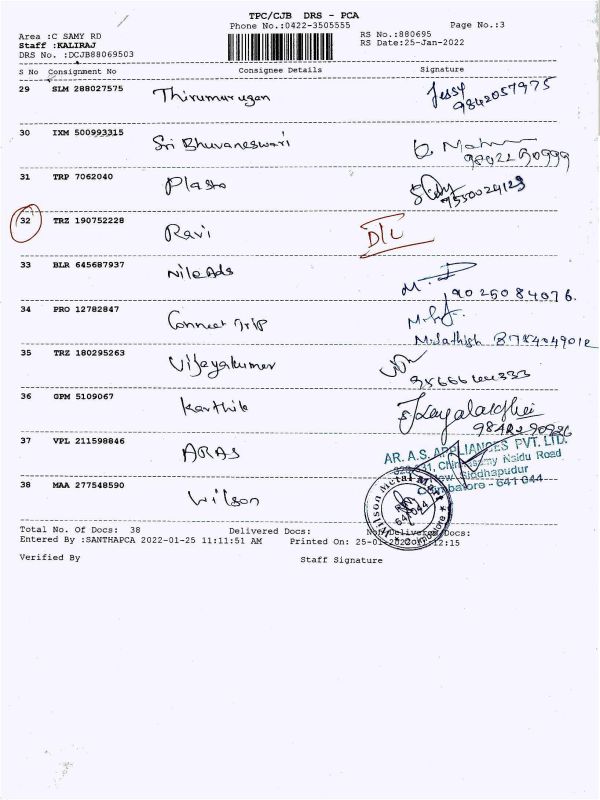 TPC/CJB DRS - PCA
Phone No.:0422-3505555
Page No.:3
Area :C SAMY RD
RS No.:880695
Staff :KALIRAJ
RS Date:25-Jan-2022
DRS No. :DCJB88069503
S No Consignment No Consignee Details Signature
29 SLM 288027575 Thirumurugan Jessy
9842057975
30 IXM 500993315 Sri Bhuvaneswari
31 TRP 7062040 Plasto
9550024123
32 TRZ 190752228 Ravi D/L
33 BLR 645687937 Nile Ads
9025084076.
34 PRO 12782847 Connect Trip
M.Sathish 8754049012
35 TRZ 180295263 Vijayakumar
36 GPM 5109067 Karthik
37 VPL 211598846 ARAS
AR. A.S. APPLIANCES PVT. LTD.
New Siddhapudur
Coimbatore - 641 044
38 MAA 277548590 Wilson
Wilson Metal Mart
641 044
Total No. Of Docs: 38 Delivered Docs: Non Delivered Docs:
Entered By :SANTHAPCA 2022-01-25 11:11:51 AM Printed On: 25-01-2022
Verified By Staff Signature